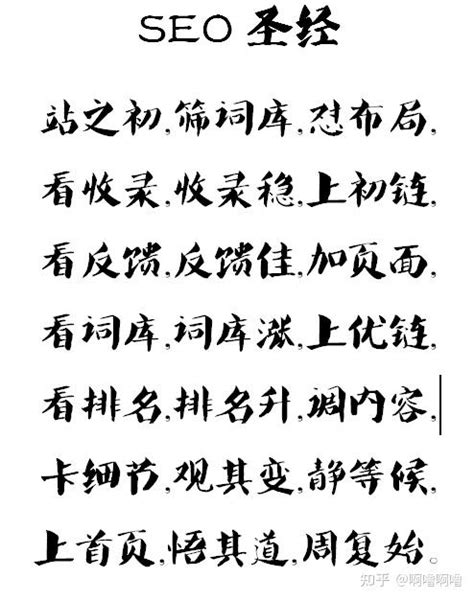 SEO 圣经
站之初,筛词库,怼布局,
看收录,收录稳,上初链,
看反馈,反馈佳,加页面,
看词库,词库涨,上优链,
看排名,排名升,调内容,
卡细节,观其变,静等候,
上首页,悟其道,周复始。
知乎 @啊噜啊噜